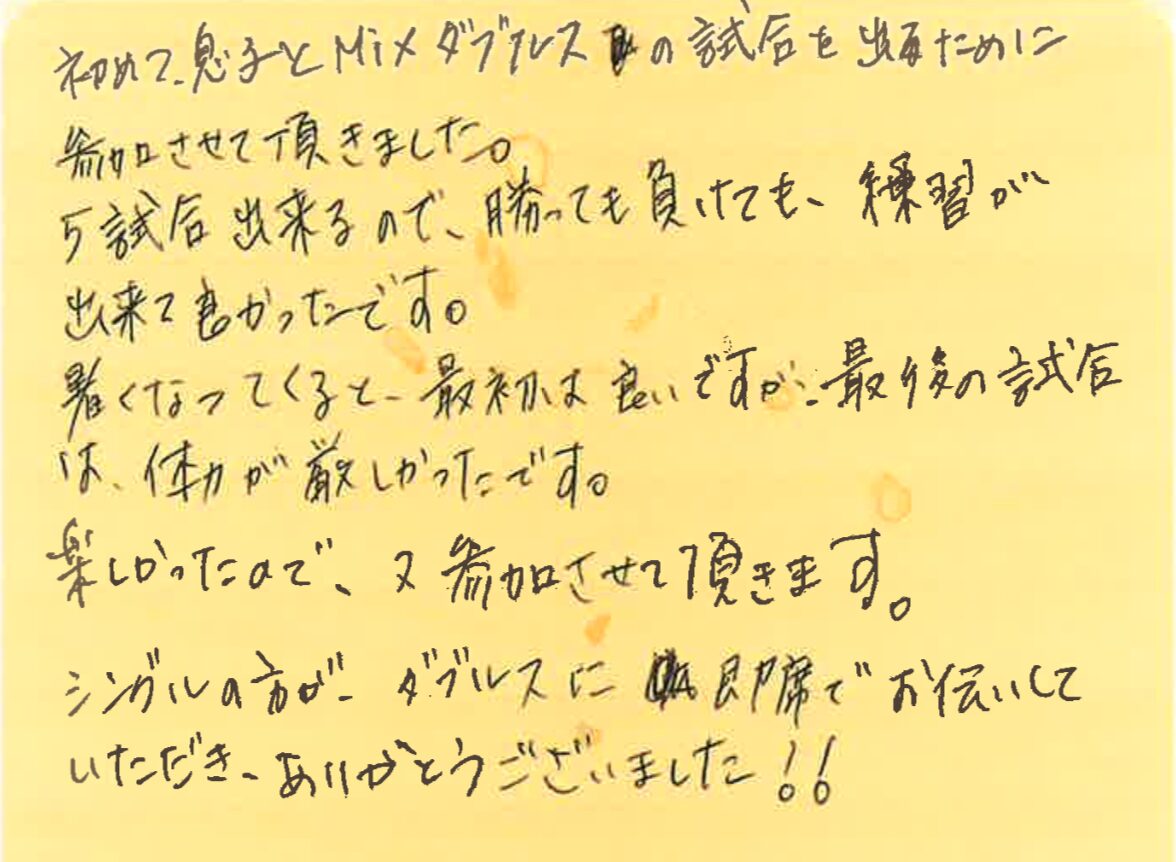 初めて、息子とMixダブルスの試合を出るために
参加させて頂きました。
5試合出来るので、勝っても負けても、練習が
出来て良かったです。
暑くなってくると、最初は良いですが、最後の試合
は、体力が厳しかったです。
楽しかったので、又参加させて頂きます。
シングルの方が、ダブルスに即席でお伝いして
いただき、ありがとうございました!!